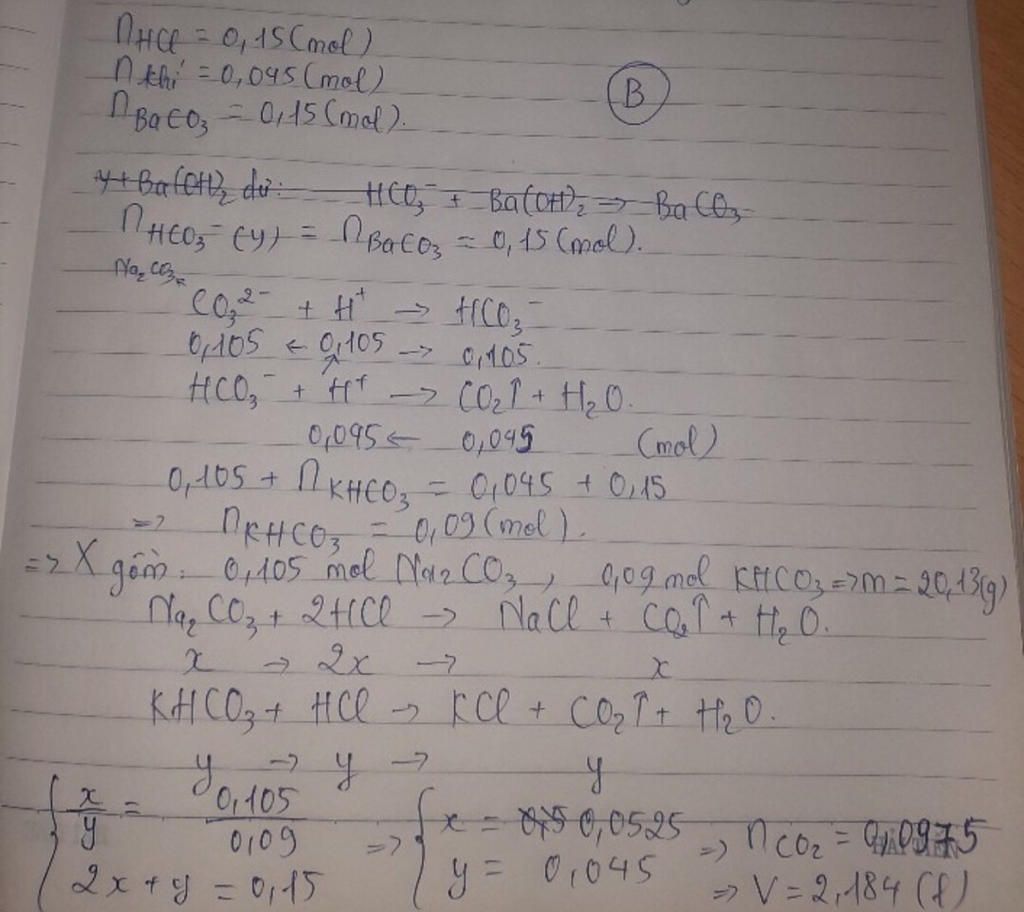 nHCl = 0,15 (mol)
n khí = 0,045 (mol)
B
nBaCO3 = 0,15 (mol).
y + Ba(OH)2 dư: HCO3⁻ + Ba(OH)2 => BaCO3
nHCO3⁻ (y) = nBaCO3 = 0,15 (mol).
Na2CO3
CO3²⁻ + H⁺ → HCO3⁻
0,105 ← 0,105 → 0,105.
HCO3⁻ + H⁺ → CO2↑ + H2O.
0,045 ← 0,045 (mol)
0,105 + nKHCO3 = 0,045 + 0,15
=> nKHCO3 = 0,09 (mol).
=> X gồm: 0,105 mol Na2CO3, 0,09 mol KHCO3 => m = 20,13 (g)
Na2CO3 + 2HCl → NaCl + CO2↑ + H2O.
x → 2x → x
KHCO3 + HCl → KCl + CO2↑ + H2O.
y → y → y
{ x/y = 0,105/0,09 => { x = 0,0525 => nCO2 = 0,0975
2x + y = 0,15 y = 0,045 => V = 2,184 (l)